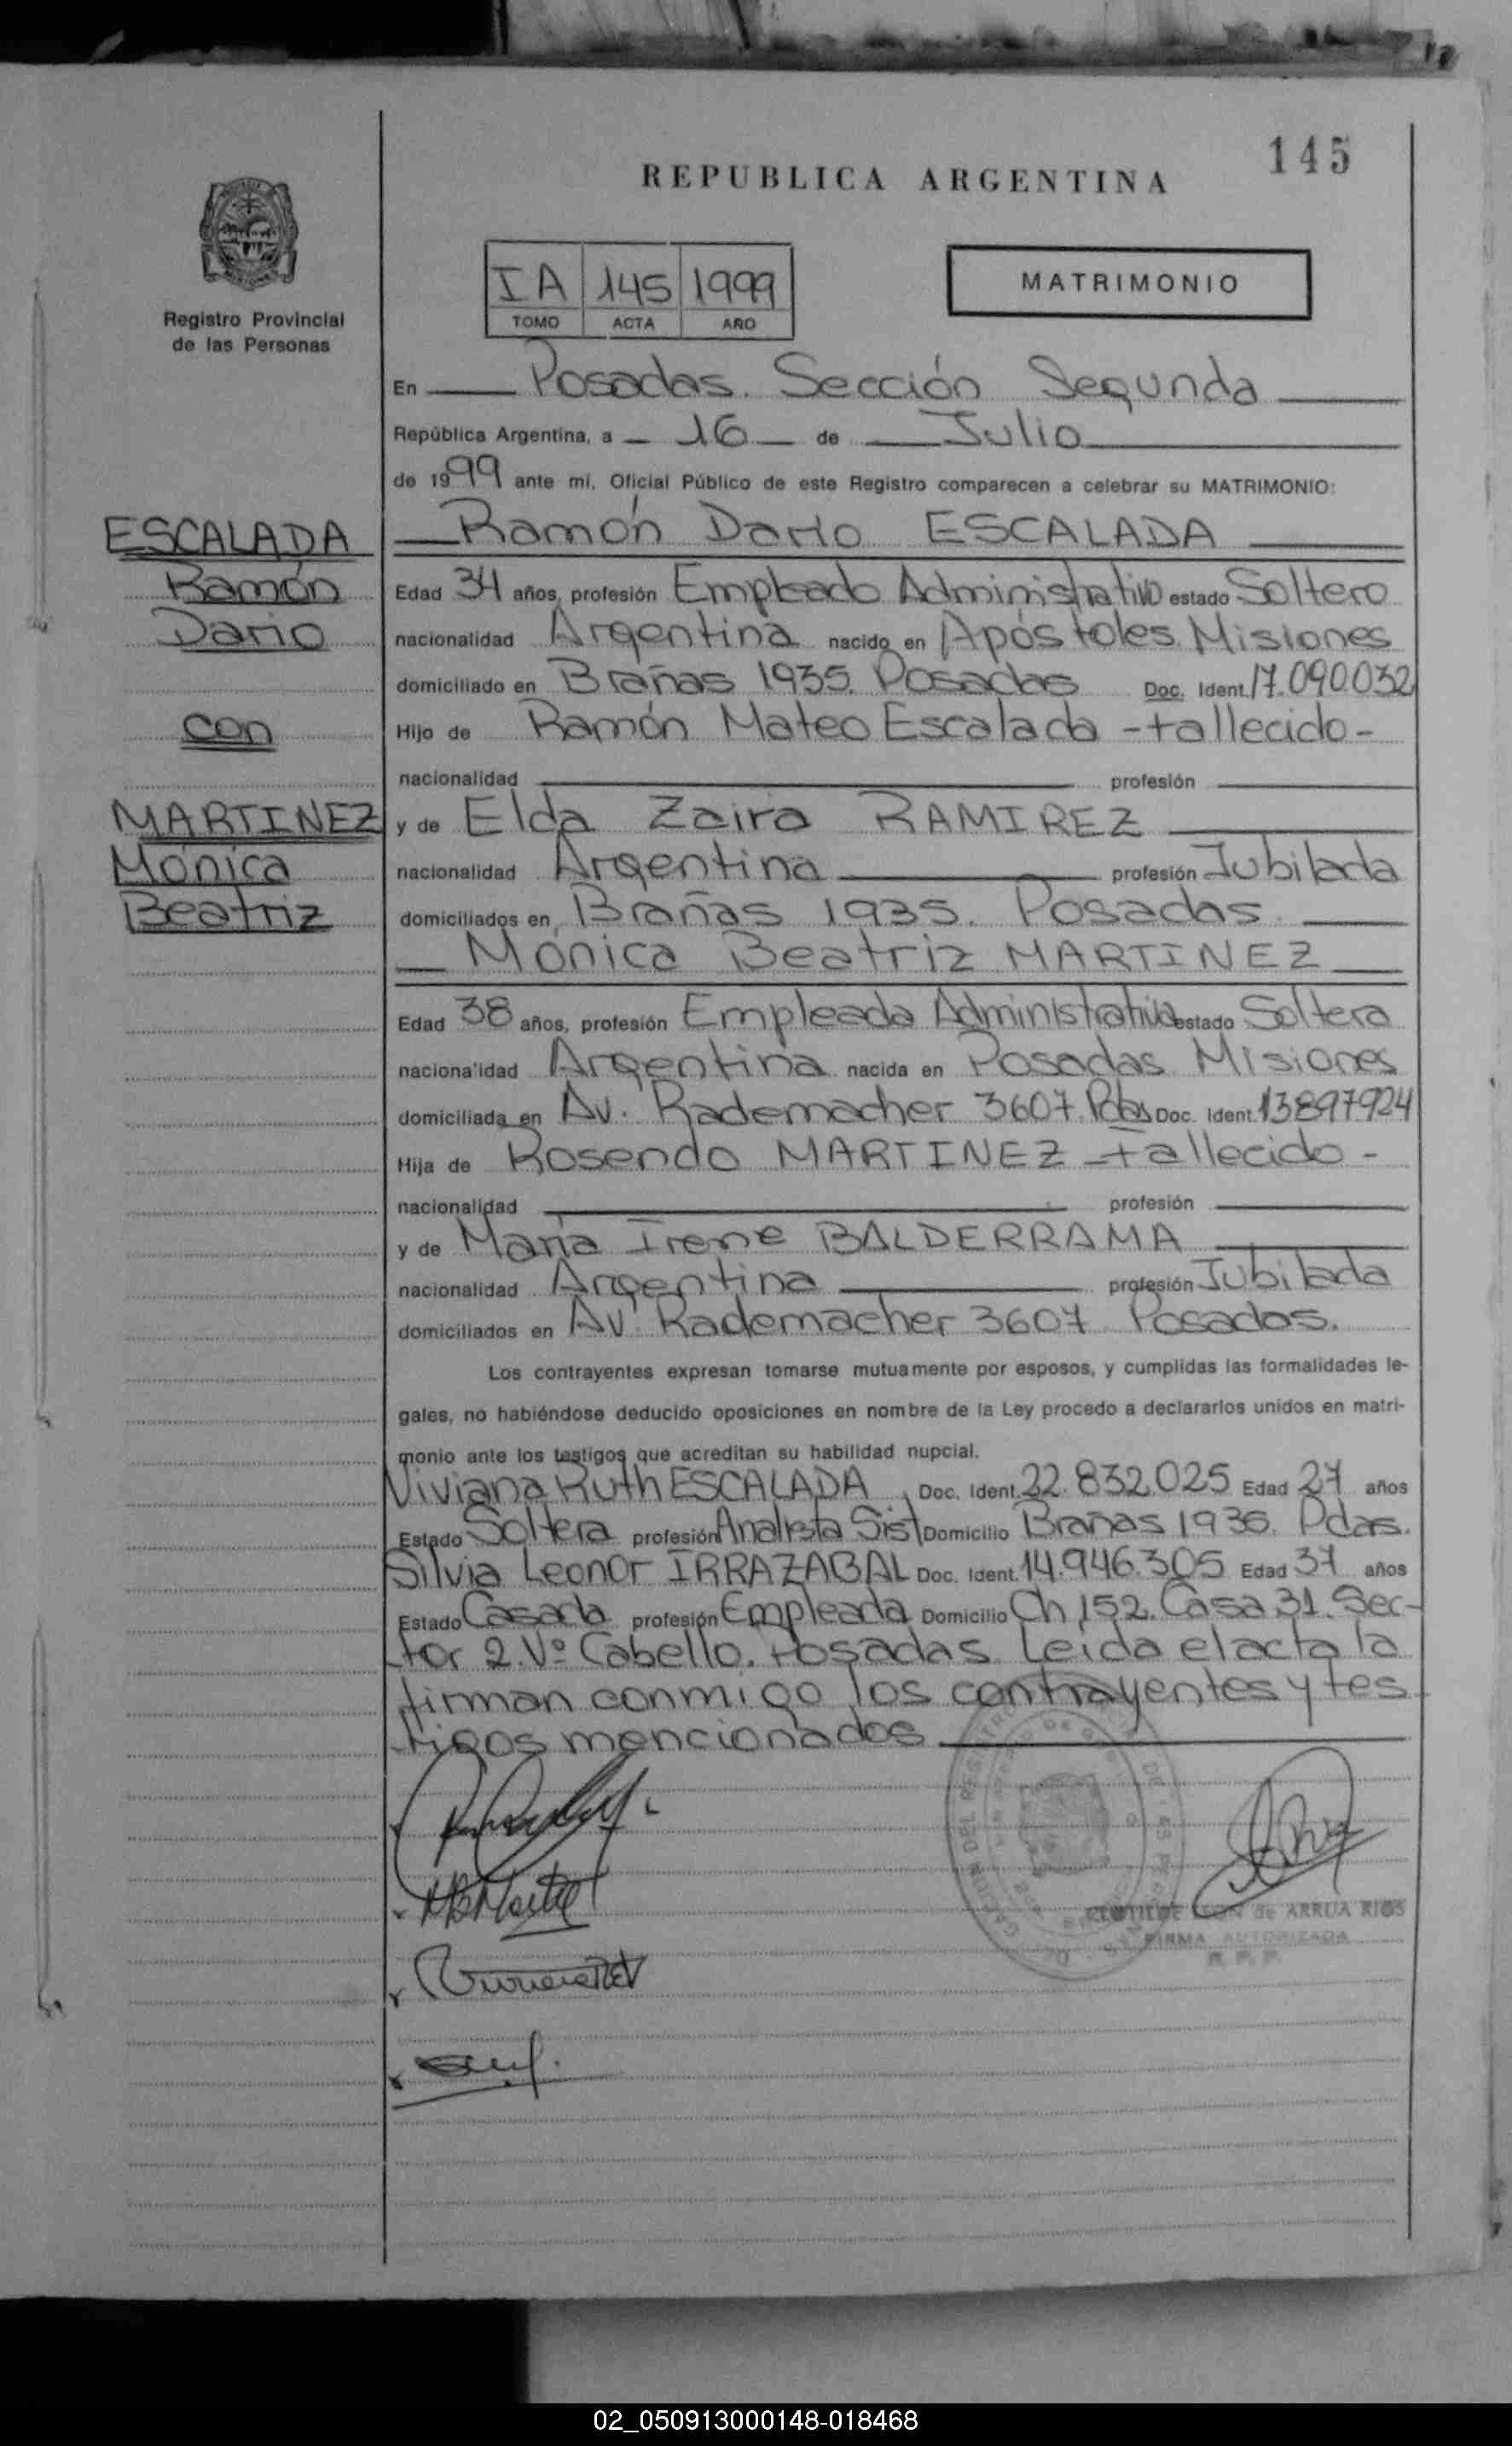 145
REPUBLICA ARGENTINA
Registro Provincial
de las Personas
IA 145 1999
TOMO ACTA AÑO
MATRIMONIO
En Posadas. Sección Segunda
República Argentina, a 16 de Julio
de 1999 ante mí, Oficial Público de este Registro comparecen a celebrar su MATRIMONIO:
ESCALADA
Ramón
Darío
con
MARTINEZ
Mónica
Beatriz
Ramón Darío ESCALADA
Edad 34 años, profesión Empleado Administrativo estado Soltero
nacionalidad Argentina nacido en Apóstoles. Misiones
domiciliado en Brañas 1935. Posadas Doc. Ident. 17.090.032
Hijo de Ramón Mateo Escalada - fallecido -
nacionalidad profesión
y de Elda Zaira RAMIREZ
nacionalidad Argentina profesión Jubilada
domiciliados en Brañas 1935. Posadas.
Mónica Beatriz MARTINEZ
Edad 38 años, profesión Empleada Administrativa estado Soltera
nacionalidad Argentina nacida en Posadas Misiones
domiciliada en Av. Rademacher 3607. Pdas Doc. Ident. 13897924
Hija de Rosendo MARTINEZ - fallecido -
nacionalidad profesión
y de María Irene BALDERRAMA
nacionalidad Argentina profesión Jubilada
domiciliados en Av. Rademacher 3607 Posadas.
Los contrayentes expresan tomarse mutuamente por esposos, y cumplidas las formalidades le-
gales, no habiéndose deducido oposiciones en nombre de la Ley procedo a declararlos unidos en matri-
monio ante los testigos que acreditan su habilidad nupcial.
Viviana Ruth ESCALADA Doc. Ident. 22.832.025 Edad 27 años
Estado Soltera profesión Analista Sist Domicilio Brañas 1935. Pdas.
Silvia Leonor IRRAZABAL Doc. Ident. 14.946.305 Edad 37 años
Estado Casada profesión Empleada Domicilio Ch 152. Casa 31. Sec-
tor 2. Vº Cabello. Posadas. Leída el acta la
firman conmigo los contrayentes y tes
tigos mencionados
de ARRUA RIOS
FIRMA AUTORIZADA
R. P. P.
02_050913000148-018468